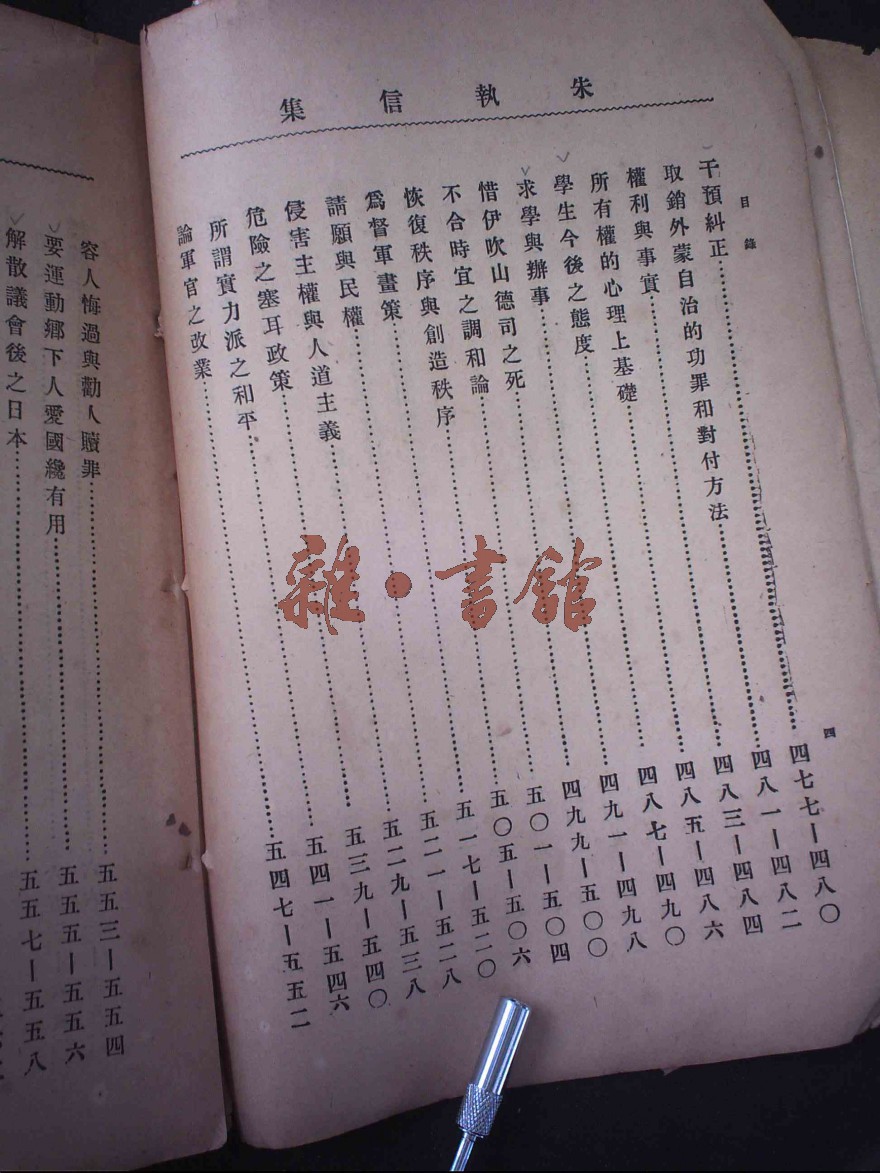 朱執信集
目錄 四
干預糾正……四七七—四八〇
取銷外蒙自治的功罪和對付方法……四八一—四八二
權利與事實……四八三—四八四
所有權的心理上基礎……四八五—四八六
學生今後之態度……四八七—四九〇
求學與辦事……四九一—四九八
惜伊吹山德司之死……四九九—五〇〇
不合時宜之調和論……五〇一—五〇四
恢復秩序與創造秩序……五〇五—五〇六
爲督軍畫策……五一七—五二〇
請願與民權……五二一—五二八
侵害主權與人道主義……五二九—五三八
危險之塞耳政策……五三九—五四〇
所謂實力派之和平……五四一—五四六
論軍官之改業……五四七—五五二
容人悔過與勸人贖罪……五五三—五五四
要運動鄉下人愛國纔有用……五五五—五五六
解散議會後之日本……五五七—五五八
雜·書館